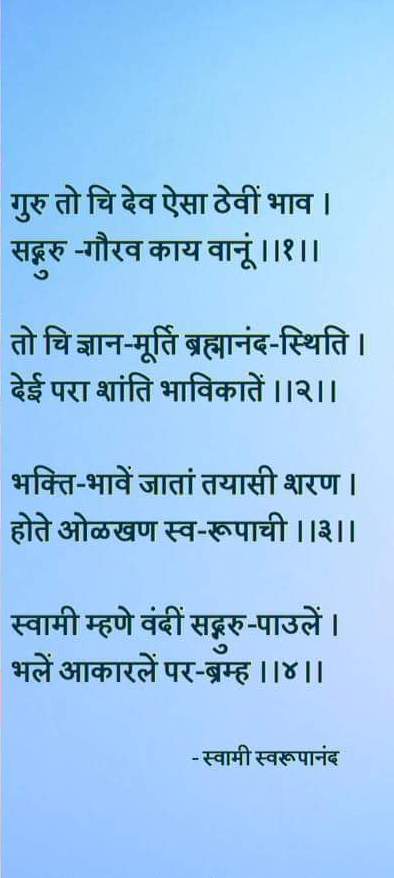 गुरु तो चि देव ऐसा ठेवीं भाव ।
सद्गुरु -गौरव काय वानूं ।।१।।
तो चि ज्ञान-मूर्ति ब्रह्मानंद-स्थिति ।
देई परा शांति भाविकातें ।।२।।
भक्ति-भावें जातां तयासी शरण ।
होते ओळखण स्व-रूपाची ।।३।।
स्वामी म्हणे वंदीं सद्गुरु-पाउलें ।
भलें आकारलें पर-ब्रम्ह ।।४।।
- स्वामी स्वरूपानंद